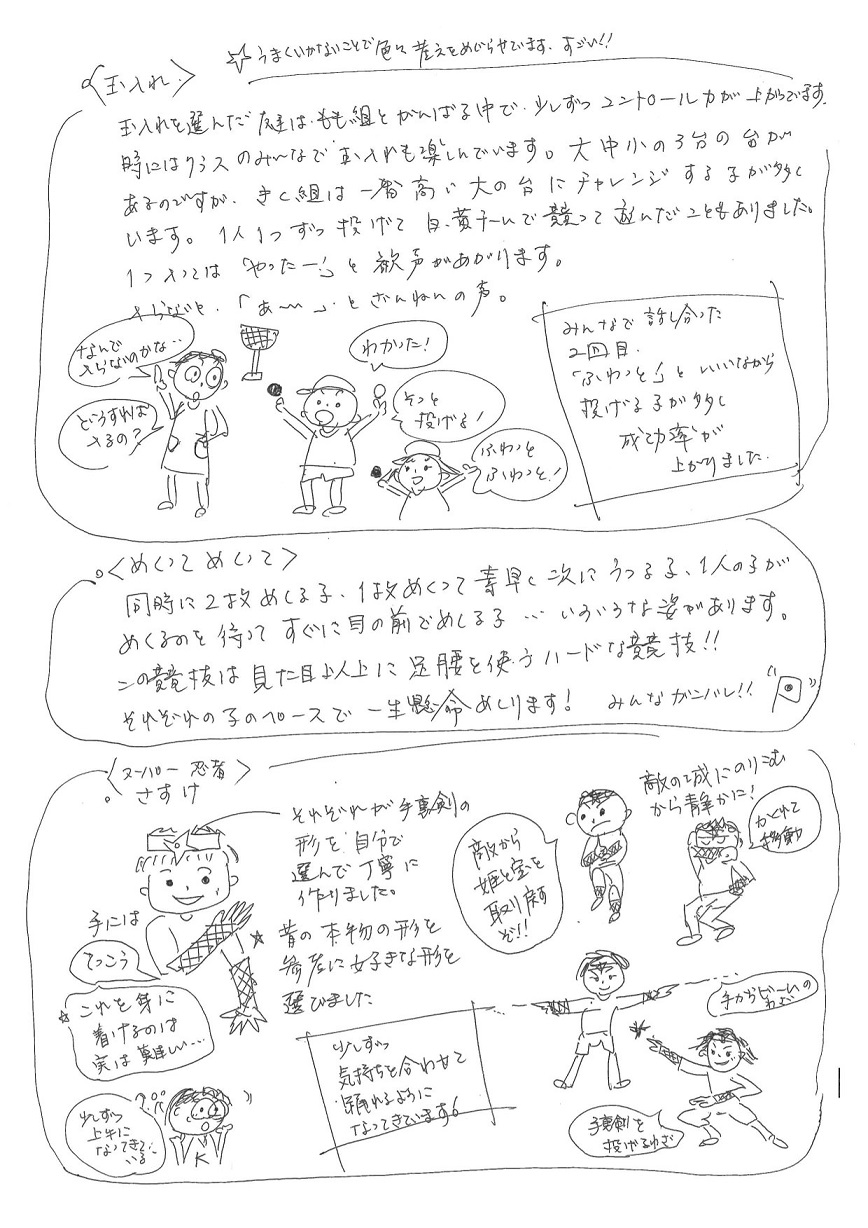 ☆うまくいかないことで色々考えをめぐらせています。すごい!!
〈玉入れ〉
玉入れを選んだ友達は、もも組とがんばる中で、少しずつコントロール力が上がってます。
時にはクラスのみんなで玉入れも楽しんでいます。大中小の3台の台が
あるのですが、きく組は一番高い大の台にチャレンジする子が多く
います。1人1つずつ投げて白、黄チームで競って遊んだこともありました。
1つ入っては「やったー!」と歓声があがります。
入らないと、「あ〜〜」とざんねんの声。
なんで
入らないのかな・・
どうすれば
入るの?
わかった!
そっと
投げる!
ふわっと
ふわっと!
みんなで話し合った
2回目。
「ふわっと」といいながら
投げる子が多く
成功率が
上がりました。
〈めくってめくって〉
同時に2枚めくる子、1枚めくって素早く次にうつる子、1人の子が
めくるのを待ってすぐに目の前でめくる子…いろいろな姿があります。
この競技は見た目以上に足腰を使うハードな競技!!
それぞれの子のペースで一生懸命めくります! みんなガンバレ!!
〈スーパー忍者〉
さすけ
それぞれが手裏剣の
形を自分で
選んで丁寧に
作りました。
昔の本物の形を
参考に好きな形を
選びました
手には
てっこう
☆これを身に
着けるのは
実は難しい…
少しずつ
上手に
なってきて
いる!!
K
少しずつ
気持ちを合わせて
踊れるように
なってきています!
敵から
姫と宝を
取り戻す
ぞ!!
敵の城にのりこむ
から静かに!
かくれて
移動
手からビームの
わざ
手裏剣を
投げるわざ